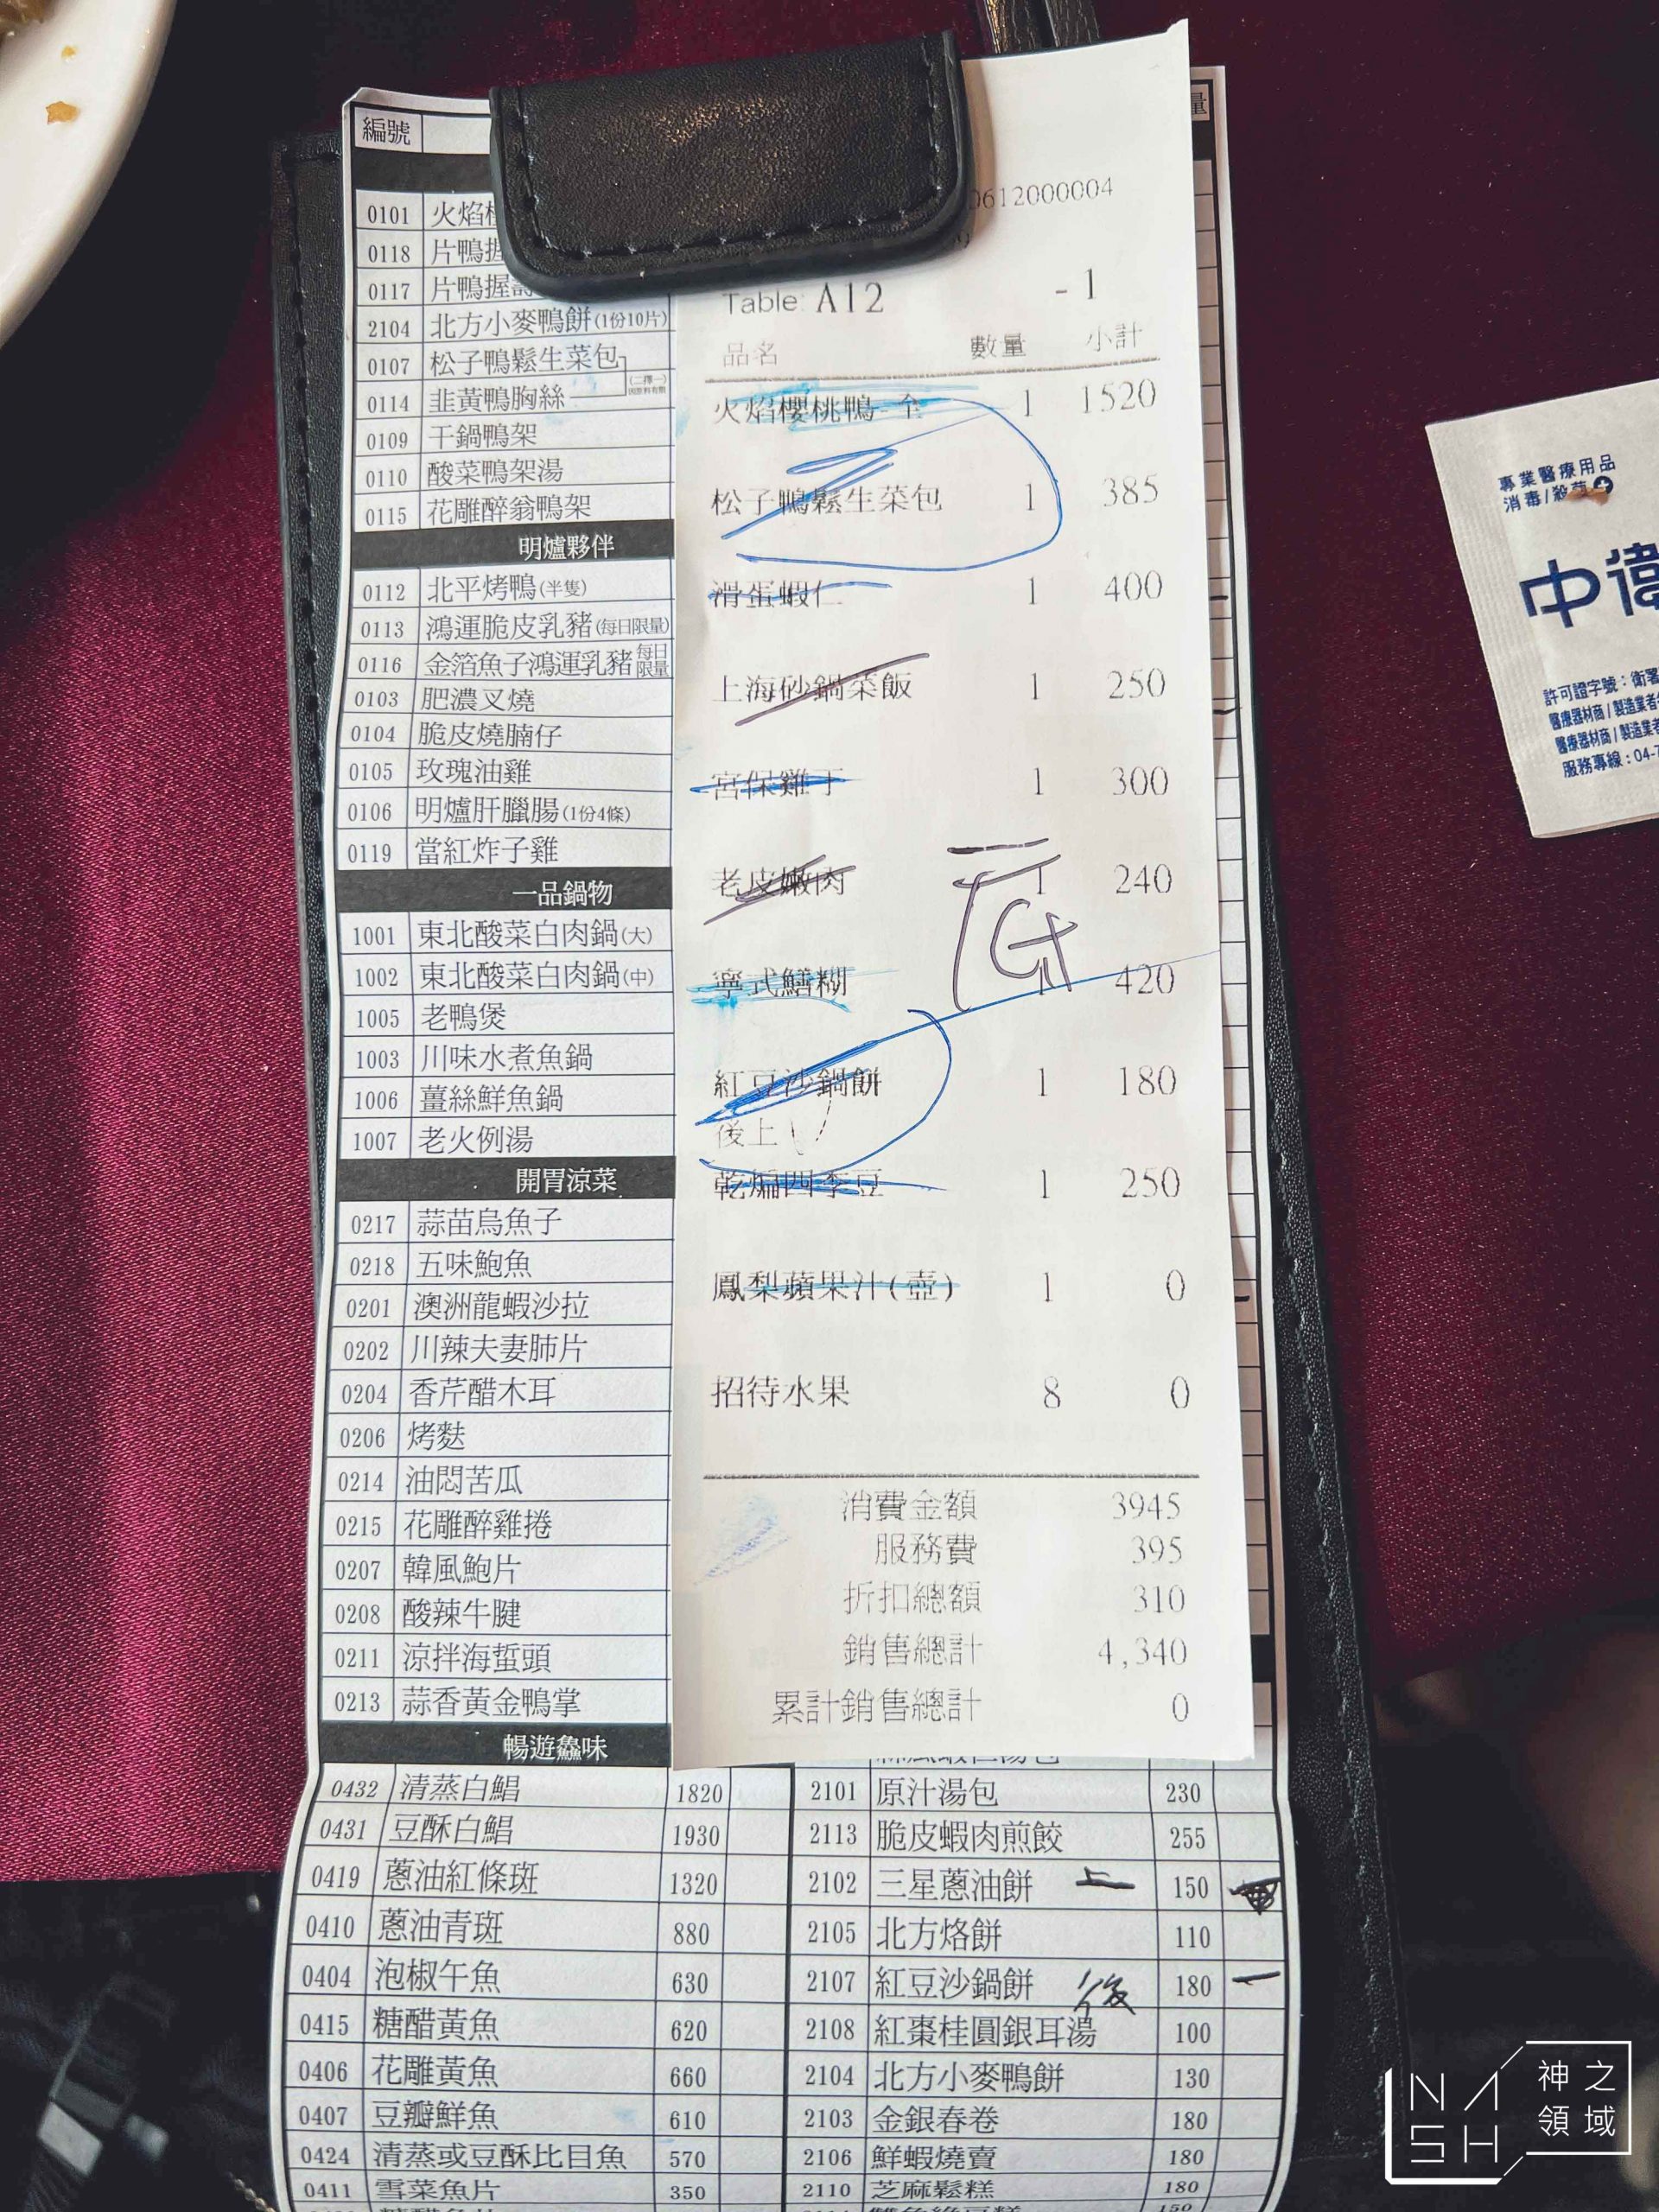 編號
量
0101 火焰
0118 片鴨握
0117 片鴨握壽
2104 北方小麥鴨餅(1份10片)
0107 松子鴨鬆生菜包
(二擇一)
0114 韭黃鴨胸絲
0109 干鍋鴨架
0110 酸菜鴨架湯
0115 花雕醉翁鴨架
明爐夥伴
0112 北平烤鴨(半隻)
0113 鴻運脆皮乳豬(每日限量)
0116 金箔魚子鴻運乳豬 每日限量
0103 肥濃叉燒
0104 脆皮燒腩仔
0105 玫瑰油雞
0106 明爐肝臘腸(1份4條)
0119 當紅炸子雞
一品鍋物
1001 東北酸菜白肉鍋(大)
1002 東北酸菜白肉鍋(中)
1005 老鴨煲
1003 川味水煮魚鍋
1006 薑絲鮮魚鍋
1007 老火例湯
開胃涼菜
0217 蒜苗烏魚子
0218 五味鮑魚
0201 澳洲龍蝦沙拉
0202 川辣夫妻肺片
0204 香芹醋木耳
0206 烤麩
0214 油悶苦瓜
0215 花雕醉雞捲
0207 韓風鮑片
0208 酸辣牛腱
0211 涼拌海蜇頭
0213 蒜香黃金鴨掌
暢遊鱻味
0432 清蒸白鯧 1820
0431 豆酥白鯧 1930
0419 蔥油紅條斑 1320
0410 蔥油青斑 880
0404 泡椒午魚 630
0415 糖醋黃魚 620
0406 花雕黃魚 660
0407 豆瓣鮮魚 610
0424 清蒸或豆酥比目魚 570
0411 雪菜魚片 350
0612000004
Table: A12 -1
品名 數量 小計
火焰櫻桃鴨-全 1 1520
松子鴨鬆生菜包 1 385
滑蛋蝦仁 1 400
上海砂鍋菜飯 1 250
宮保雞丁 1 300
老皮嫩肉 1 240
寧式鱔糊 1 420
紅豆沙鍋餅 1 180
後上
乾煸四季豆 1 250
鳳梨蘋果汁(壺) 1 0
招待水果 8 0
消費金額 3945
服務費 395
折扣總額 310
銷售總計 4,340
累計銷售總計 0
2101 原汁湯包 230
2113 脆皮蝦肉煎餃 255
2102 三星蔥油餅 上 150
2105 北方烙餅 110
2107 紅豆沙鍋餅 後 180 一
2108 紅棗桂圓銀耳湯 100
2104 北方小麥鴨餅 130
2103 金銀春卷 180
2106 鮮蝦燒賣 180
2110 芝麻鬆糕 180
專業醫療用品
消毒/殺菌
中衛
許可證字號：衛署
醫療器材商/製造業者
醫療器材商/製造業者
服務專線：04-7
NASH
神之
領域